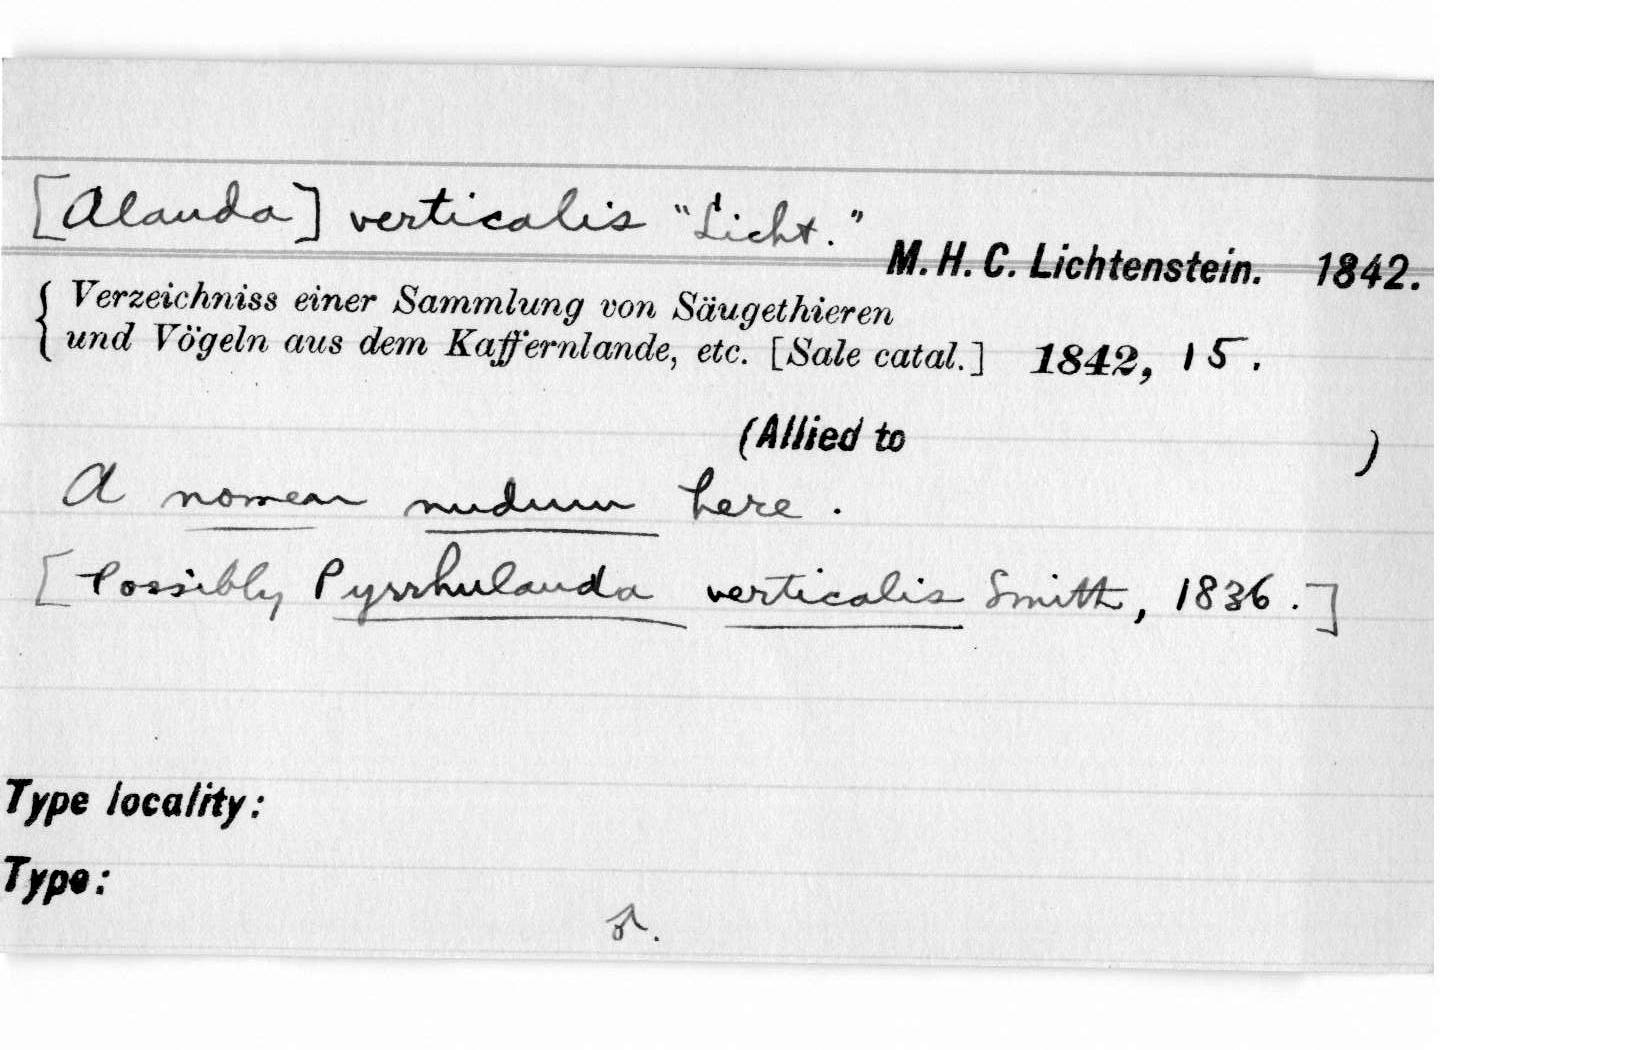 [Alauda] verticalis "Licht."
M. H. C. Lichtenstein. 1842.
Verzeichniss einer Sammlung von Säugethieren
und Vögeln aus dem Kaffernlande, etc. [Sale catal.] 1842, 15.
(Allied to )
A nomen nudum here.
[Possibly Pyrrhulauda verticalis Smith, 1836.]
Type locality:
Type: